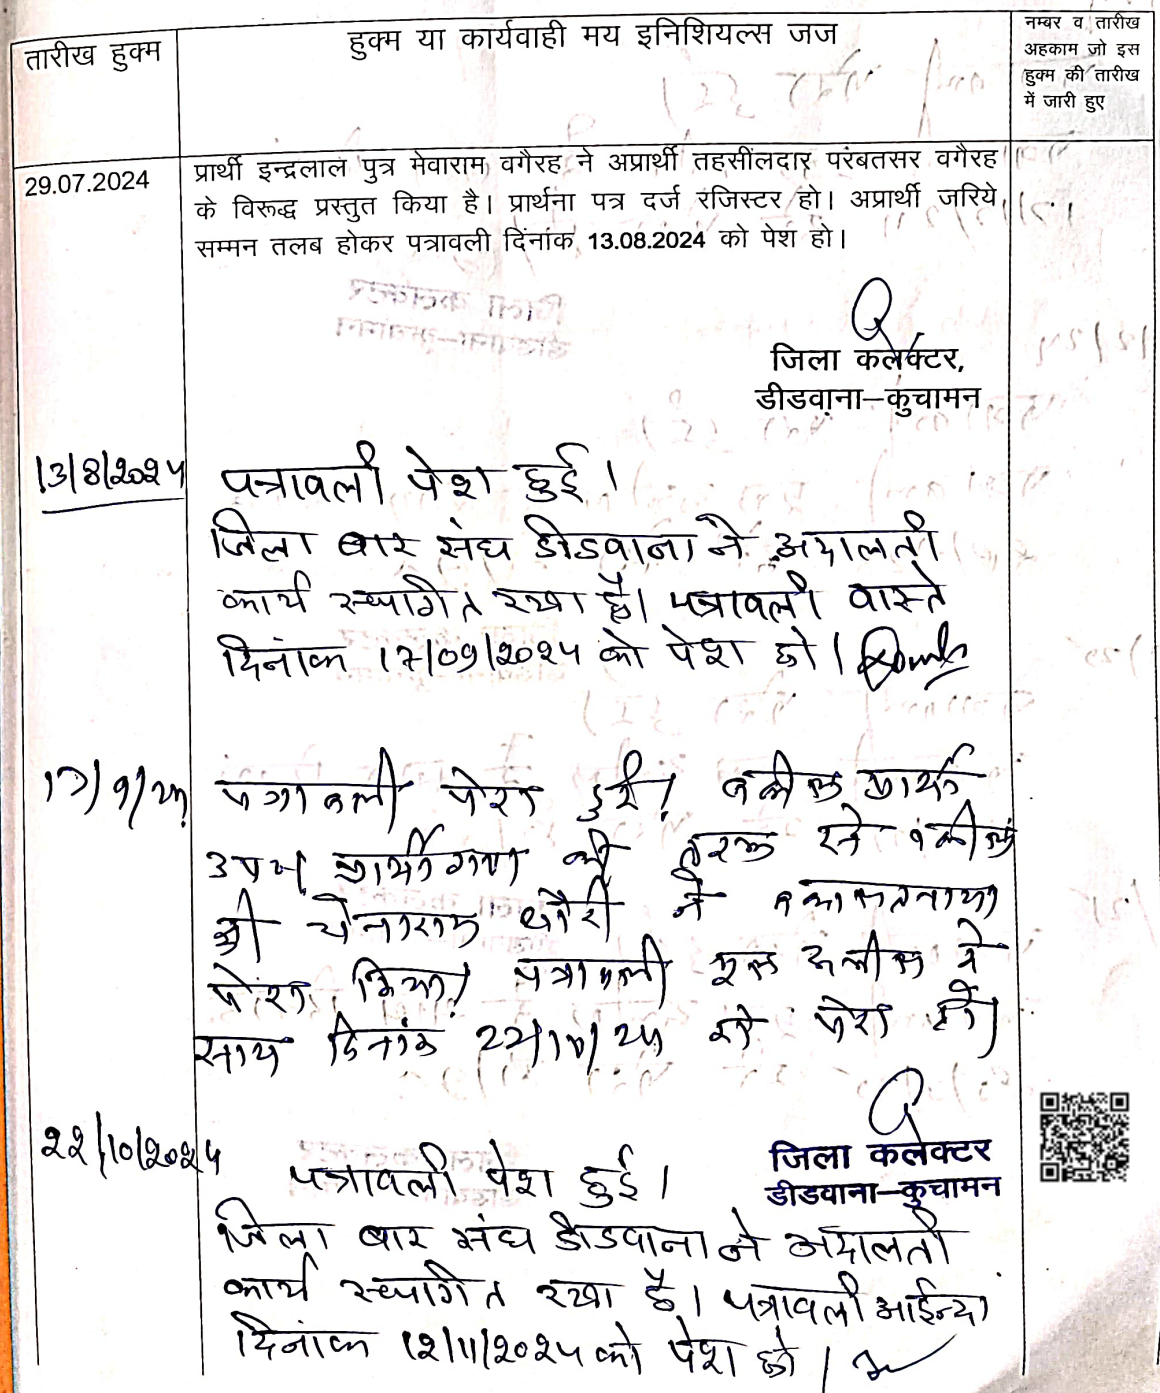 तारीख हुक्म
हुक्म या कार्यवाही मय इनिशियल्स जज
नम्बर व तारीख
अहकाम जो इस
हुक्म की तारीख
में जारी हुए
29.07.2024
प्रार्थी इन्द्रलाल पुत्र मेवाराम वगैरह ने अप्रार्थी तहसीलदार परबतसर वगैरह
के विरूद्ध प्रस्तुत किया है। प्रार्थना पत्र दर्ज रजिस्टर हो। अप्रार्थी जरिये
सम्मन तलब होकर पत्रावली दिनांक 13.08.2024 को पेश हो।
जिला कलेक्टर,
डीडवाना–कुचामन
13/8/२०२५ पत्रावली पेश हुई।
जिला बार संघ डीडवाना ने अदालती
कार्य स्थगित रखा है। पत्रावली वास्ते
दिनांक 17/09/२०२५ को पेश हो।
17/9/24 पत्रावली पेश हुई। वकील प्रार्थी
उप० प्रार्थीगण की तरफ से वकील
श्री चेनाराम चौरी ने वकालतनामा
पेश किया। पत्रावली के
साथ दिनांक 22/10/24 को पेश हो।
जिला कलेक्टर
डीडवाना–कुचामन
२२/10/२०२५ पत्रावली पेश हुई।
जिला बार संघ डीडवाना ने अदालती
कार्य स्थगित रखा है। पत्रावली आईन्दा
दिनांक 1२/11/२०२५ को पेश हो।